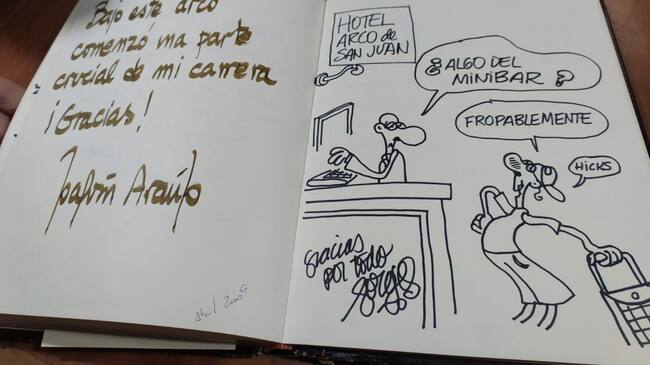 Bajo este arco
comenzó una parte
crucial de mi carrera
¡Gracias!
Joaquín Araújo
abril 2009
HOTEL
ARCO de
SAN JUAN
¿ALGO DEL
MINIBAR?
FROPABLEMENTE
HICKS
Gracias
por todo
Forges